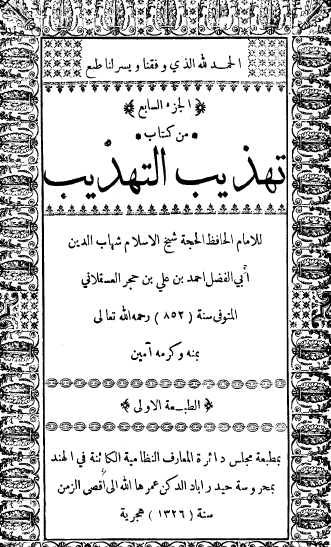 الحمد لله الذي وفقنا ويسر لنا طبع
الجزء السابع
من كتاب
تهذيب التهذيب
للامام الحافظ الحجة شيخ الاسلام شهاب الدين
أبي الفضل احمد بن علي بن حجر العسقلاني
المتوفى سنة ( ٨٥٢ ) رحمه الله تعالى
بمنه وكرمه آمين
الطبعة الاولى
بمطبعة مجلس دائرة المعارف النظامية الكائنة في الهند
بمحروسة حيدر اباد الدكن عمرها الله الى أقصى الزمن
سنة ( ١٣٢٦ ) هجرية